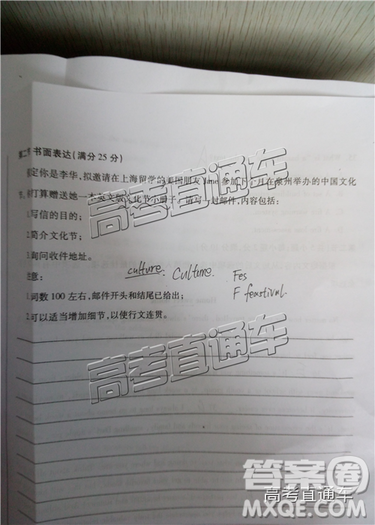 书面表达(满分25分)
定你是李华,拟邀请在上海留学的美国朋友
加
月在泉州举办的中国文化
打算赠送她一本
化节小册子,请写一封邮件,内容包括:
写信的目的;
简介文化节;
询问收件地址。
意:
culture. Culture. Fes
词数100左右,邮件开头和结尾已给出;
F feastival.
可以适当增加细节,以使行文连贯。
高考直通车
高考直通车
答案圈
高考直通车